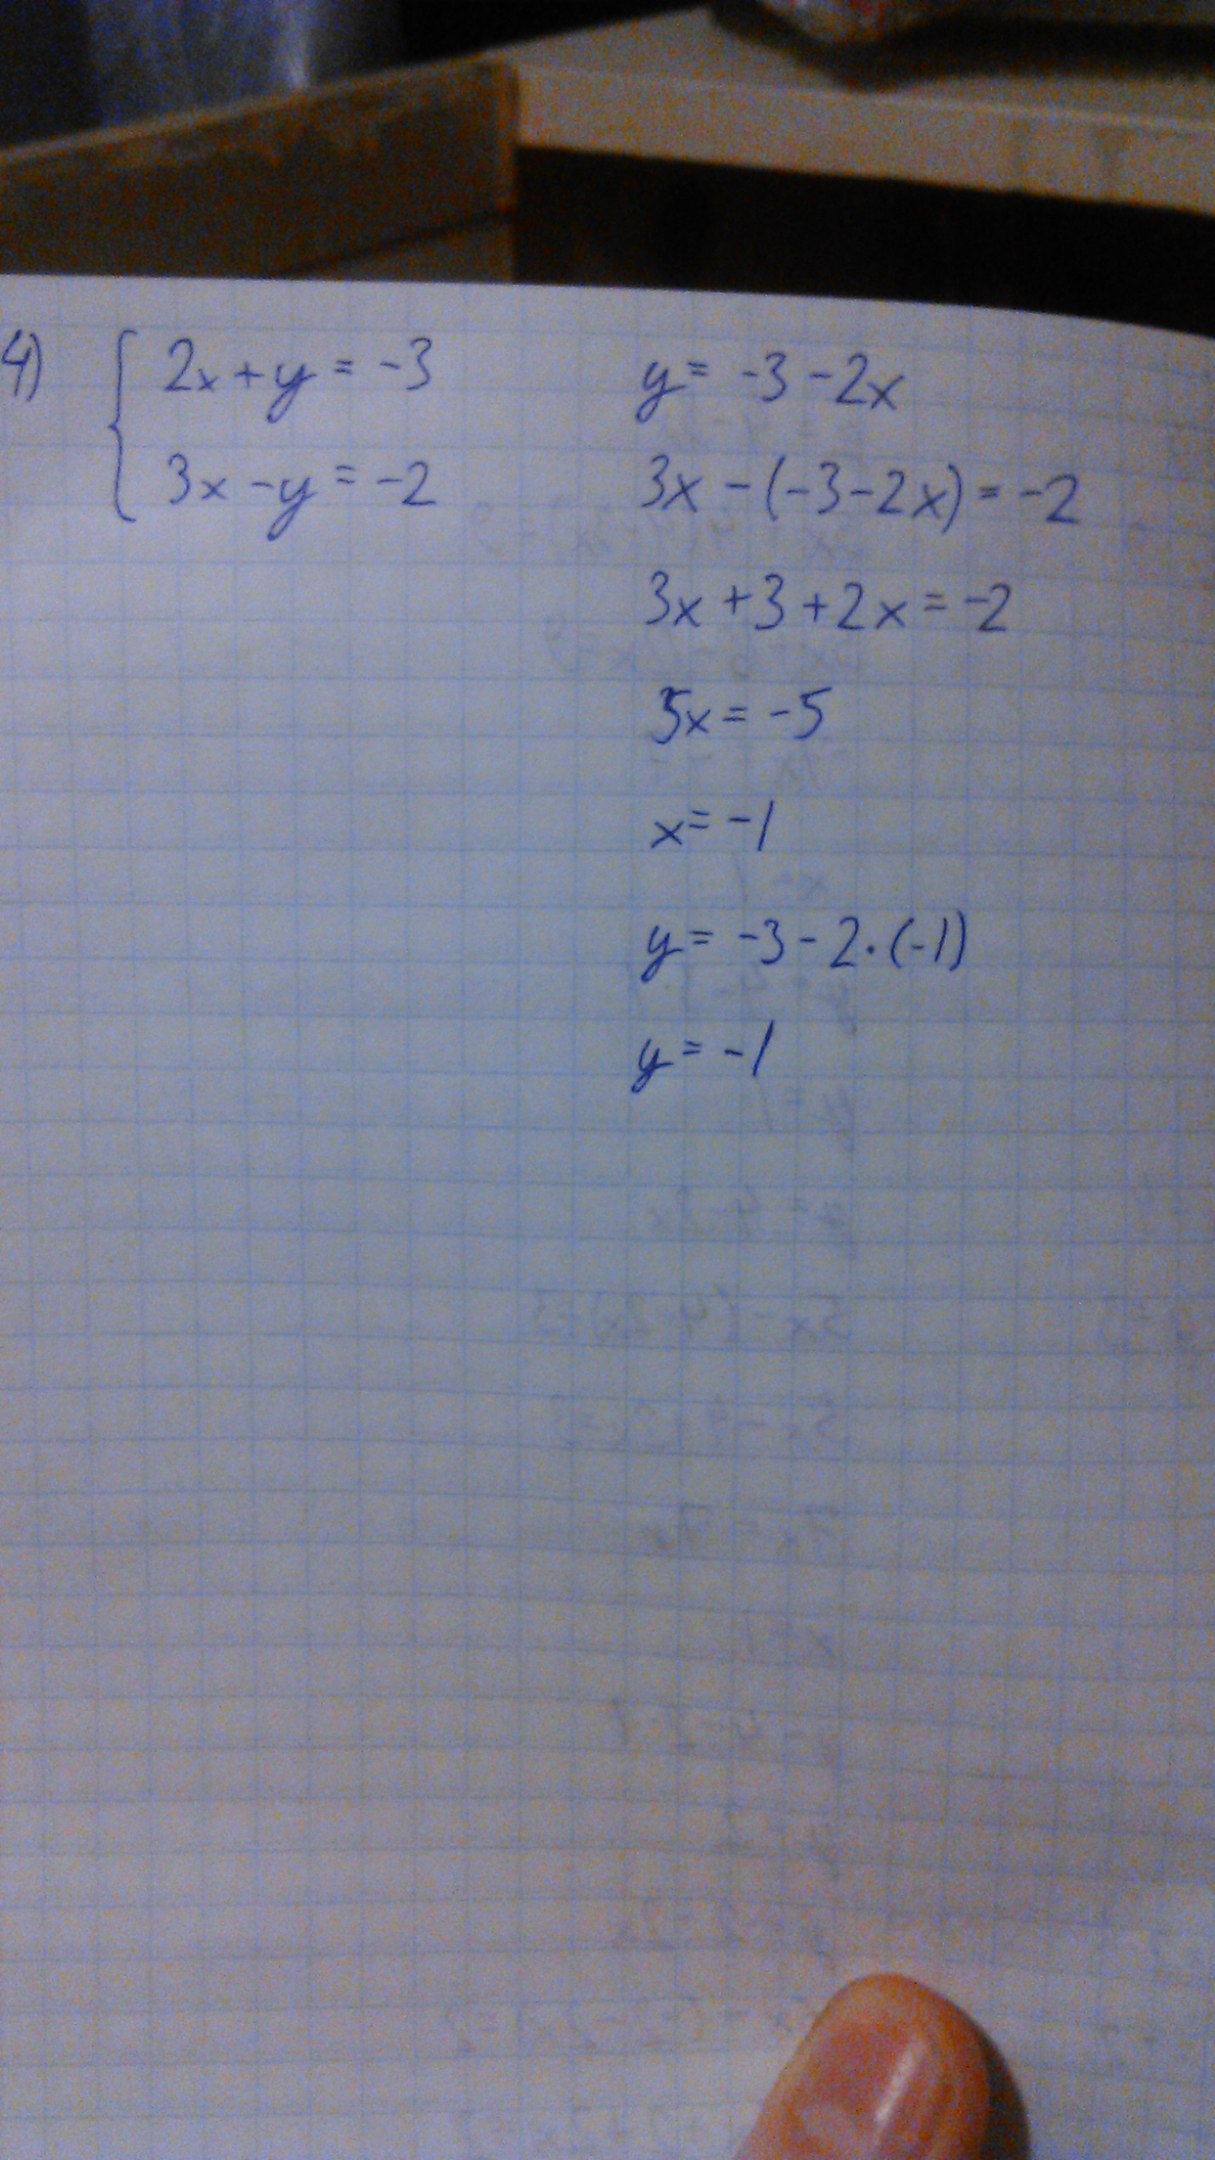 4)
2x + y = -3
3x - y = -2
y = -3 - 2x
3x - (-3 - 2x) = -2
3x + 3 + 2x = -2
5x = -5
x = -1
y = -3 - 2 · (-1)
y = -1